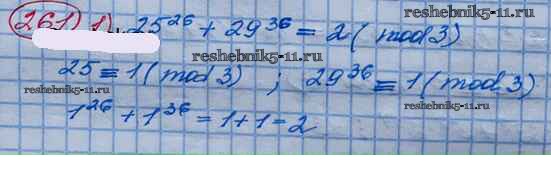 261) 1) 25²⁶ + 29³⁶ = 2 (mod 3)
reshebnik5-11.ru
reshebnik5-11.ru
25 ≡ 1 (mod 3) ; 29³⁶ ≡ 1 (mod 3)
reshebnik5-11.ru
reshebnik5-11.ru
1²⁶ + 1³⁶ = 1 + 1 = 2